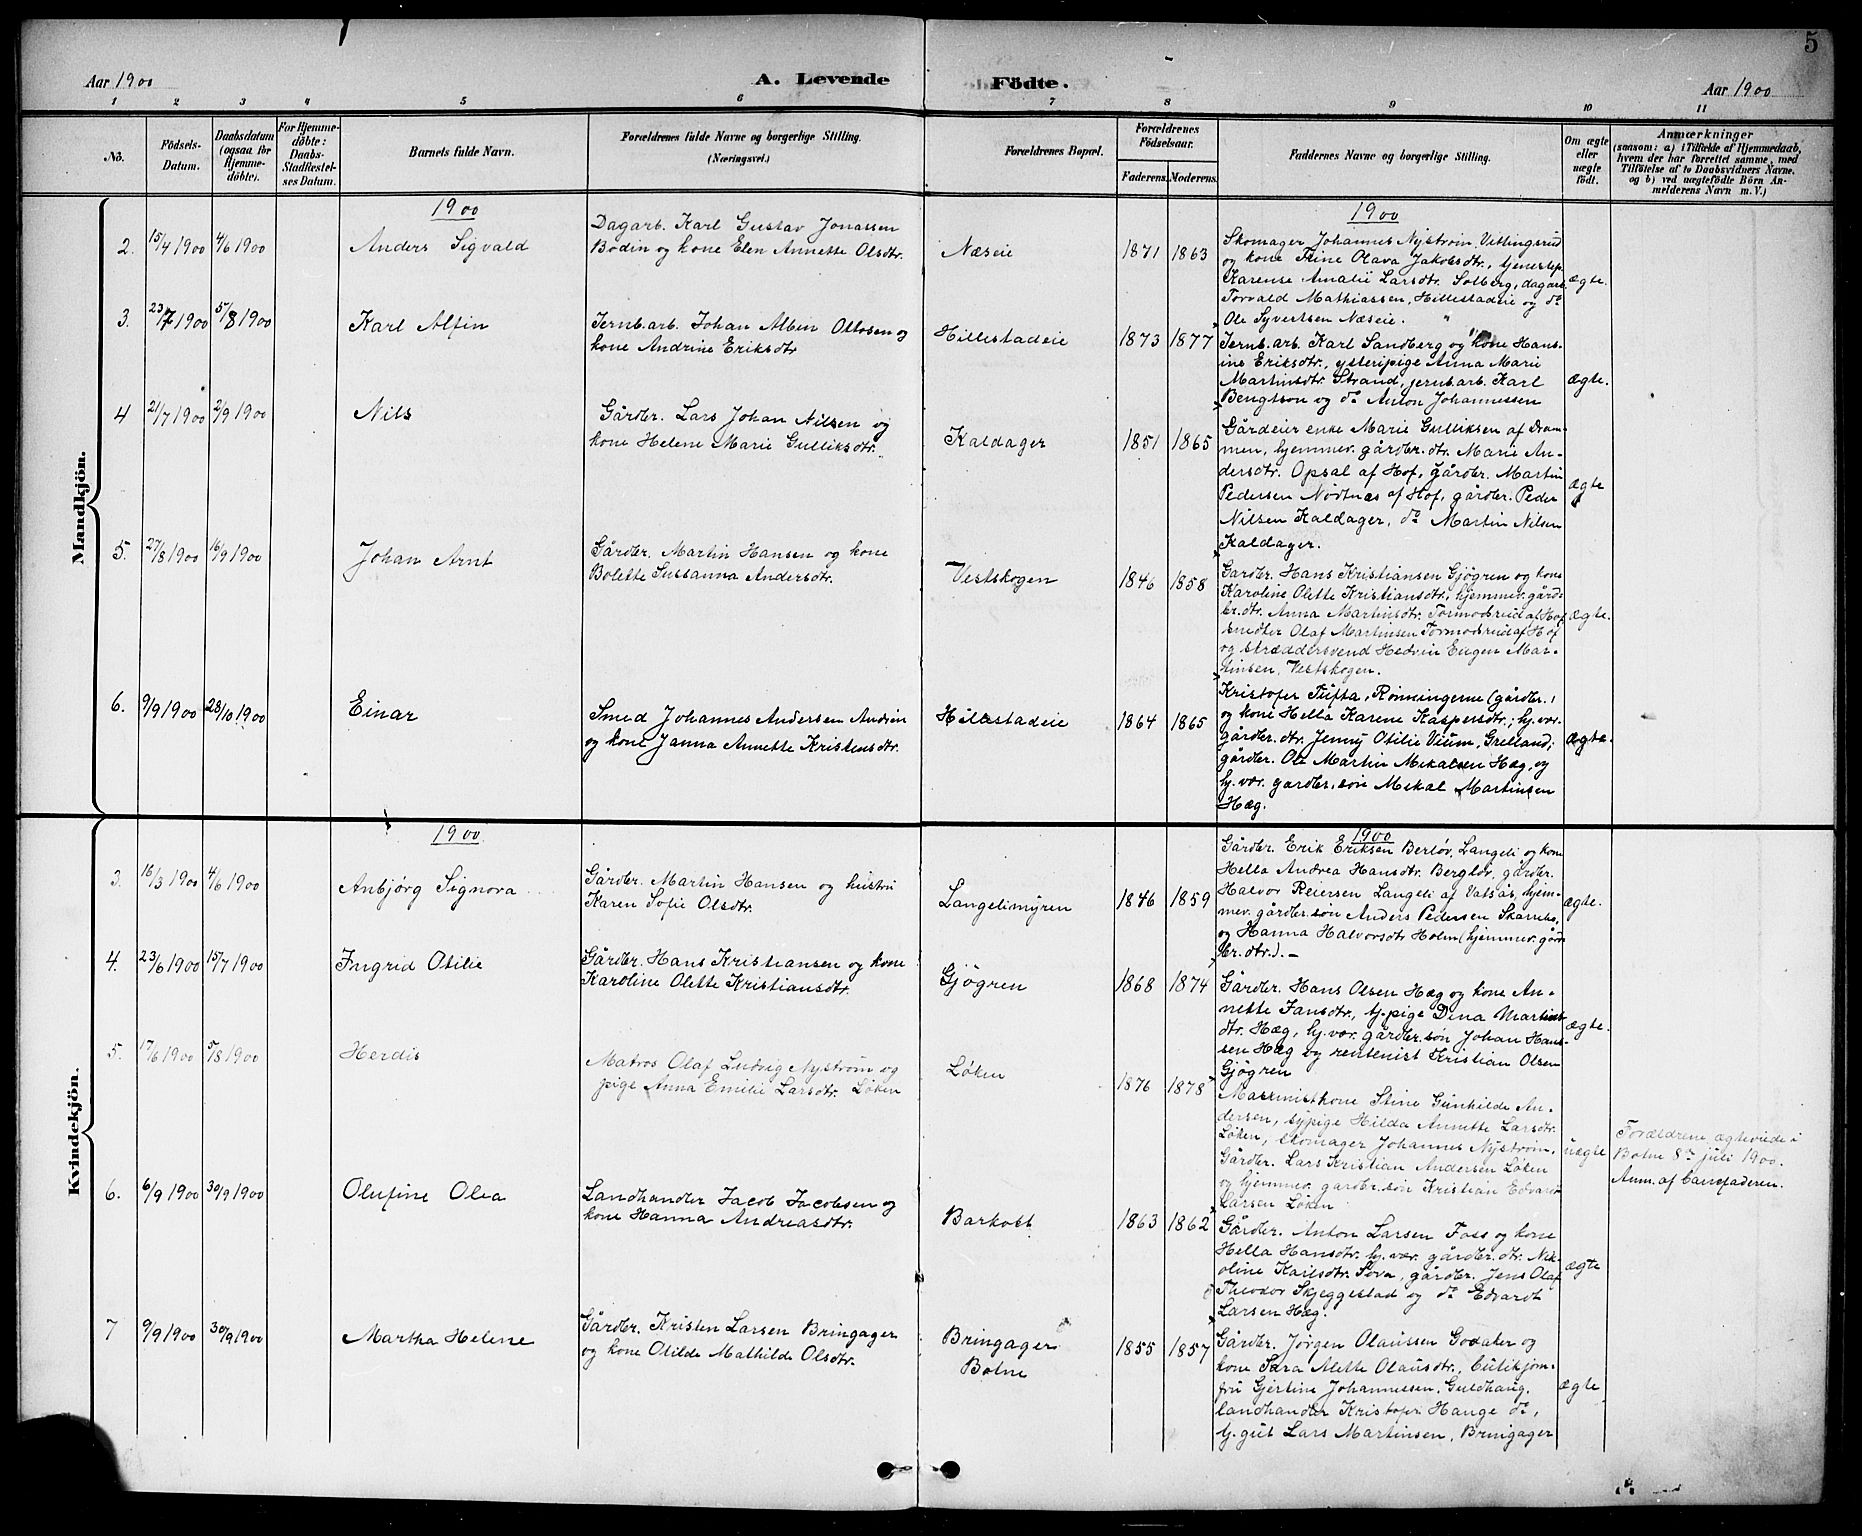 5
Aar 1900
A. Levende
Födte.
Aar 1900
1 2 3 4 5 6 7 8 9 10 11
No.
Födsels-
Datum.
Daabsdatum
(ogsaa for
Hjemme-
döbte).
For Hjemme-
döbte:
Daabs-
Stadfæstel-
ses Datum.
Barnets fulde Navn.
Forældrenes fulde Navne og borgerlige Stilling.
(Næringsvei.)
Forældrenes Bopæl.
Forældrenes
Födselsaar.
Faderens. Moderens.
Faddernes Navne og borgerlige Stilling.
Om ægte
eller
uægte
födt.
Anmærkninger
(saasom: a) i Tilfælde af Hjemmedaab,
hvem der har forrettet samme, med
Tilföielse af to Daabsvidners Navne,
og b) ved uægtefödte Börn An-
melderens Navn m. V.)
Mandkjön.
1900
1900
2. 15/4 1900 4/6 1900
Anders Sigvald
Dagarb. Karl Gustav Jonassen
Bodin og kone Elen Annette Olsdtr.
Næseie
1871 1863
Skomager Johannes Nystrøm, Vetlingsrud
og kone Stine Olava Jakobsdtr., tjenestep.
Karense Amalie Larsdtr. Solberg, dagarb.
Torvald Mathiassen, Hillestadeie og do
Ole Syvertsen Næseie.
ægte.
3. 23/7 1900 5/8 1900
Karl Alfin
Jernb.arb. Johan Albin Ottosen og
kone Andrine Eriksdtr
Hillestadeie
1873 1877
Jernb. arb. Karl Sandberg og kone Hans-
ine Eriksdtr., ysteripige Anna Marie
Martinsdtr. Strand, jernb.arb. Karl
Bengtson og do Anton Johannessen
ægte.
4 21/7 1900 2/9 1900
Nils
Gårdbr. Lars Johan Nilsen og
kone Helene Marie Gulliksdtr.
Kaldager
1851 1865
Gårdeier enke Marie Gulliksen af Dram-
men, hjemmev. gårdbr. dtr. Marie An-
dersdtr. Opsal af Hof, gårdbr. Martin
Pedersen Nødtnæs af Hof, gårdbr. Peder
Nilsen Kaldager, do Martin Nilsen
Kaldager.
ægte
5. 27/8 1900 16/9 1900
Johan Arnt
Gårdbr. Martin Hansen og kone
Bolette Sussanna Andersdtr.
Vestskogen
1846 1858
Gardbr. Hans Kristiansen Gjøgren og kone
Karoline Olette Kristiansdtr., hjemmev. gård-
br. dtr. Anna Martinsdtr. Tormodsrud af Hof,
snedker Olaf Martinsen Tormodsrud af Hof
og skræddersvend Hedvin Eugen Mar-
tinsen, Vestskogen.
ægte.
6. 9/9 1900 28/10 1900
Einar
Smed Johannes Andersen
og kone Janna Annette Kristensdtr.
Hillestadeie
1864 1865
Kristofer Tufta, Rønningerne (gårdbr.)
og kone Hella Karene Kaspersdtr.; hj. vær.
gårdbr. dtr. Jenny Otilie Vium, Grelland;
gårdbr. Ole Martin Mikalsen Hæg, og
hj. vær. gardbr. søn Mekal Martinsen
Hæg.
ægte.
Kvindekjön.
1900
1900
3. 16/3 1900 4/6 1900
Anbjørg Signora
Gårdbr. Martin Hansen og hustru
Karen Sofie Olsdtr.
Langelimyren
1846 1859
Gårdbr. Erik Eriksen Berløv, Langeli og kone
Hella Andrea Hansdtr. Bergløv, gårdbr.
Halvor Reiersen Langeli af Vatsås, hjem-
mev. gårdbr. søn Anders Pedersen
og Hanna Halvorsdtr Holm (hjemmev. gård-
br. dtr.). –
ægte.
4. 23/6 1900 15/7 1900
Ingrid Otilie
Gårdbr. Hans Kristiansen og kone
Karoline Olette Kristiansdtr.
Gjøgren
1868 1874
Gårdbr. Hans Olsen Hæg og kone An-
nette Fansdtr., tj.pige Dina Martins-
dtr. Hæg, hj. vær. gårdbr. søn Johan Hans-
sen Hæg og rentenist Kristian Olsen
Gjøgren
ægte.
5. 17/6 1900 5/8 1900
Herdis
Matros Olaf Ludvig Nystrøm og
pige Anna Emilie Larsdtr. Løken
Løken
1876 1878
Maskinistkone Stine Gunhilde An-
dersen, sypige Hilda Annette Larsdtr.
Løken, skomager Johannes Nystrøm,
Gårdbr. Lars Kristian Andersen Løken
og hjemmev. gardbr. søn Kristian Edvard
Larsen Løken
uægte
Forældrene ægteviede i
Botne 8de juli 1900.
Anm. af barnefaderen.
6. 6/9 1900 30/9 1900
Olufine Olea
Landhandler Jacob Jacobsen og
kone Hanna Andreasdtr.
Barkost
1863 1862
Gårdbr. Anton Larsen Foss og kone
Hella Hansdtr. hj. vær. gårdbr. dtr. Nik-
oline Karlsdtr. Sova, gårdbr. Jens Olaf
Theodor Skjeggestad og do Edvardt
Larsen Hæg.
ægte
7 9/9 1900 30/9 1900
Martha Helene
Gårdbr. Kristen Larsen Bringager
og kone Otilde Mathilde Olsdtr.
Bringager
Botne
1855 1857
Gårdbr. Jørgen Olaussen Godaker og
kone Sara Alette Olausdtr., butikjom-
fru Gjertine Johannessen, Guldhaug,
landhandler Kristofer Hauge do,
tj. gut Lars Martinsen, Bringager
ægte